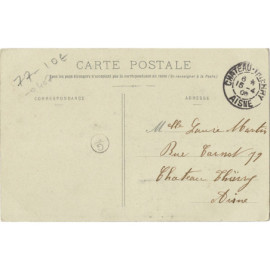 CARTE POSTALE
77-108
CORRESPONDANCE
ADRESSE
CHATEAU-THIERRY
AISNE
Melle Laure Martin
Rue Carnot 79
Château Thierry
Aisne